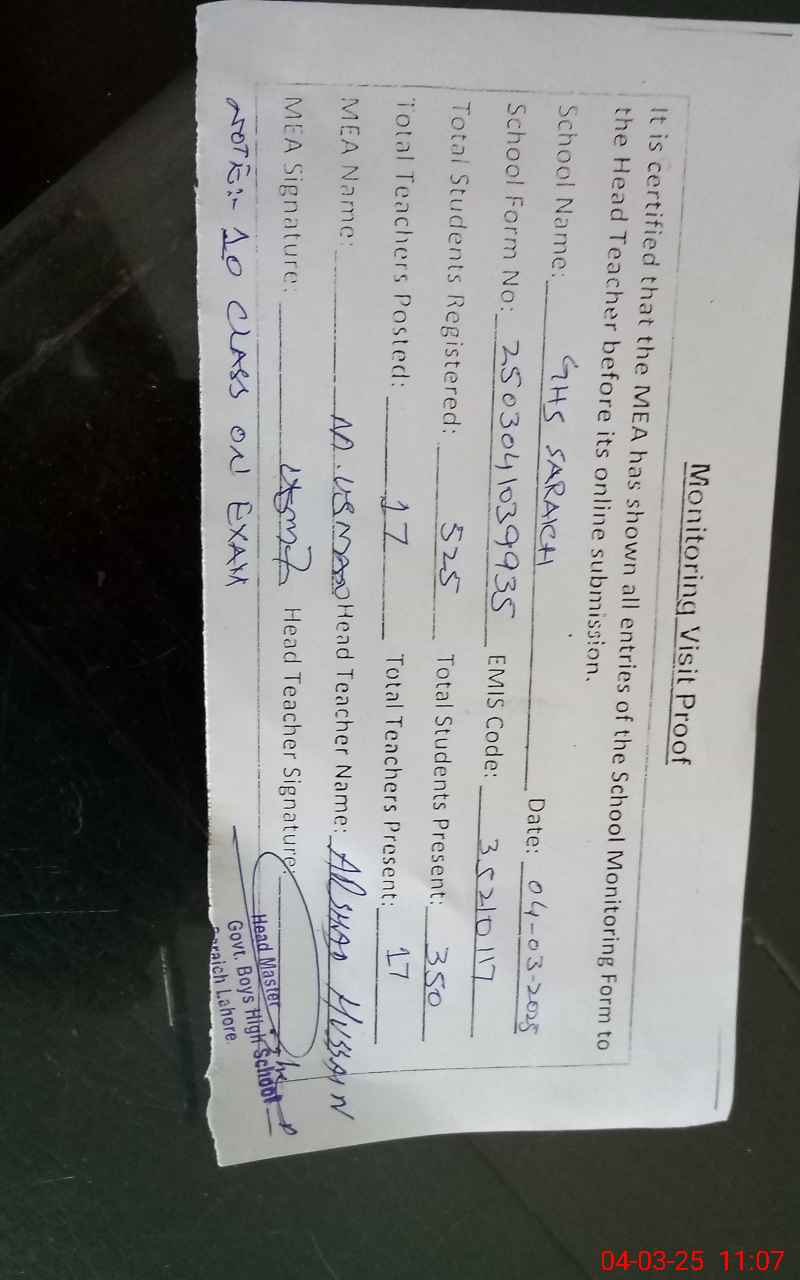 Monitoring Visit Proof
It is certified that the MEA has shown all entries of the School Monitoring Form to
the Head Teacher before its online submission.
School Name: GHS SARAICH Date: 04-03-2025
School Form No: 2503041039935 EMIS Code: 35210117
Total Students Registered: 525 Total Students Present: 350
Total Teachers Posted: 17 Total Teachers Present: 17
MEA Name: M. USMAN Head Teacher Name: ARSHAD HUSSAIN
MEA Signature: Head Teacher Signature:
NOTE:- 10 CLASS ON EXAM
Head Master
Govt. Boys High School
Saraich Lahore.
04-03-25 11:07